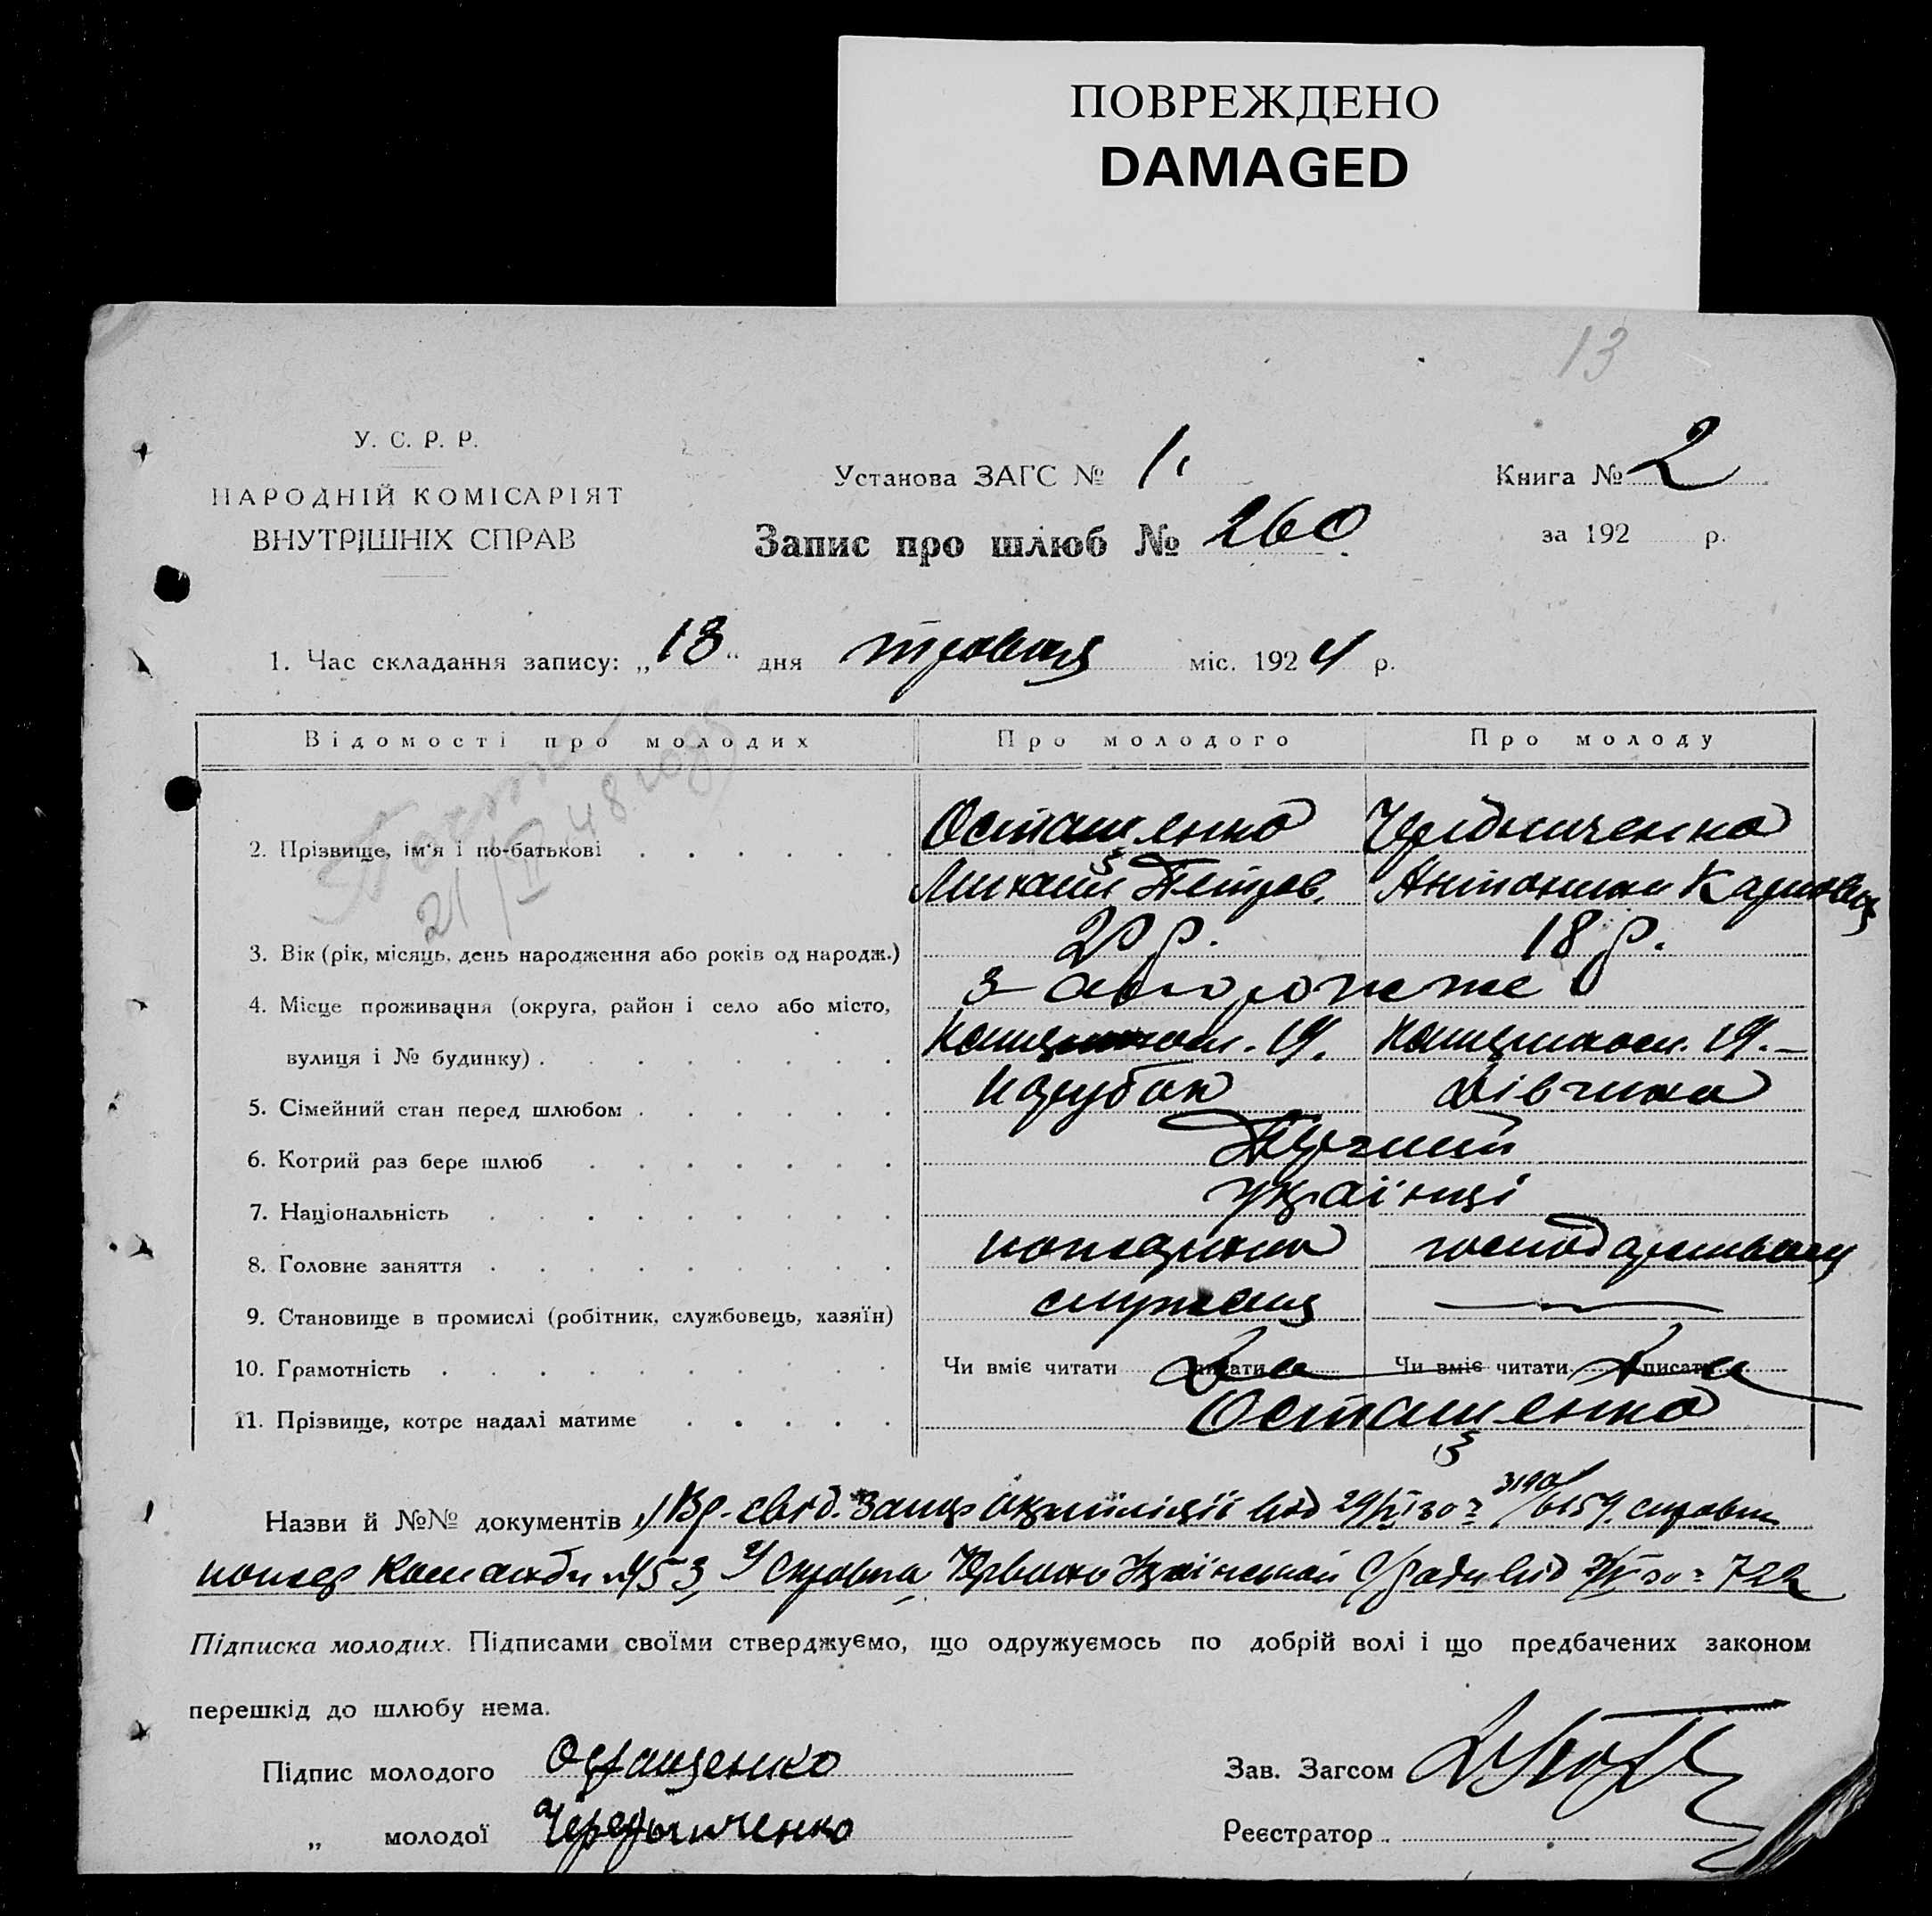 ПОВРЕЖДЕНО
DAMAGED
13
У. С. Р. Р.
НАРОДНІЙ КОМІСАРІЯТ
ВНУТРІШНІХ СПРАВ
Установа ЗАГС № 1.
Книга № 2
Запис про шлюб № 260
за 192 р.
1. Час складання запису: „18“ дня травня міс. 1924 р.
Відомості про молодих Про молодого Про молоду
2. Прізвище, ім'я і по-батькові Осташенко Чередниченко
Михаил Петров. Антонина Карповна
3. Вік (рік, місяць, день народження або років од народж.) 20 р. 18 р.
4. Місце проживання (округа, район і село або місто, Запорожже
вулиця і № будинку) 19. 19.
5. Сімейний стан перед шлюбом парубок дівчина
6. Котрий раз бере шлюб Перший
7. Національність українці
8. Головне заняття пожарник господарювання
9. Становище в промислі (робітник, службовець, хазяїн) служащ
10. Грамотність Чи вміє читати писати Да Чи вміє читати писати Да
11. Прізвище, котре надалі матиме Осташенко
Назви й №№ документів свід. від 29/ справка
пожар команди 453, 2) Справка від 722
Підписка молодих. Підписами своїми стверджуємо, що одружуємось по добрій волі і що предбачених законом
перешкід до шлюбу нема.
Підпис молодого Остащенко
Зав. Загсом
„ молодої Чередниченко
Реєстратор